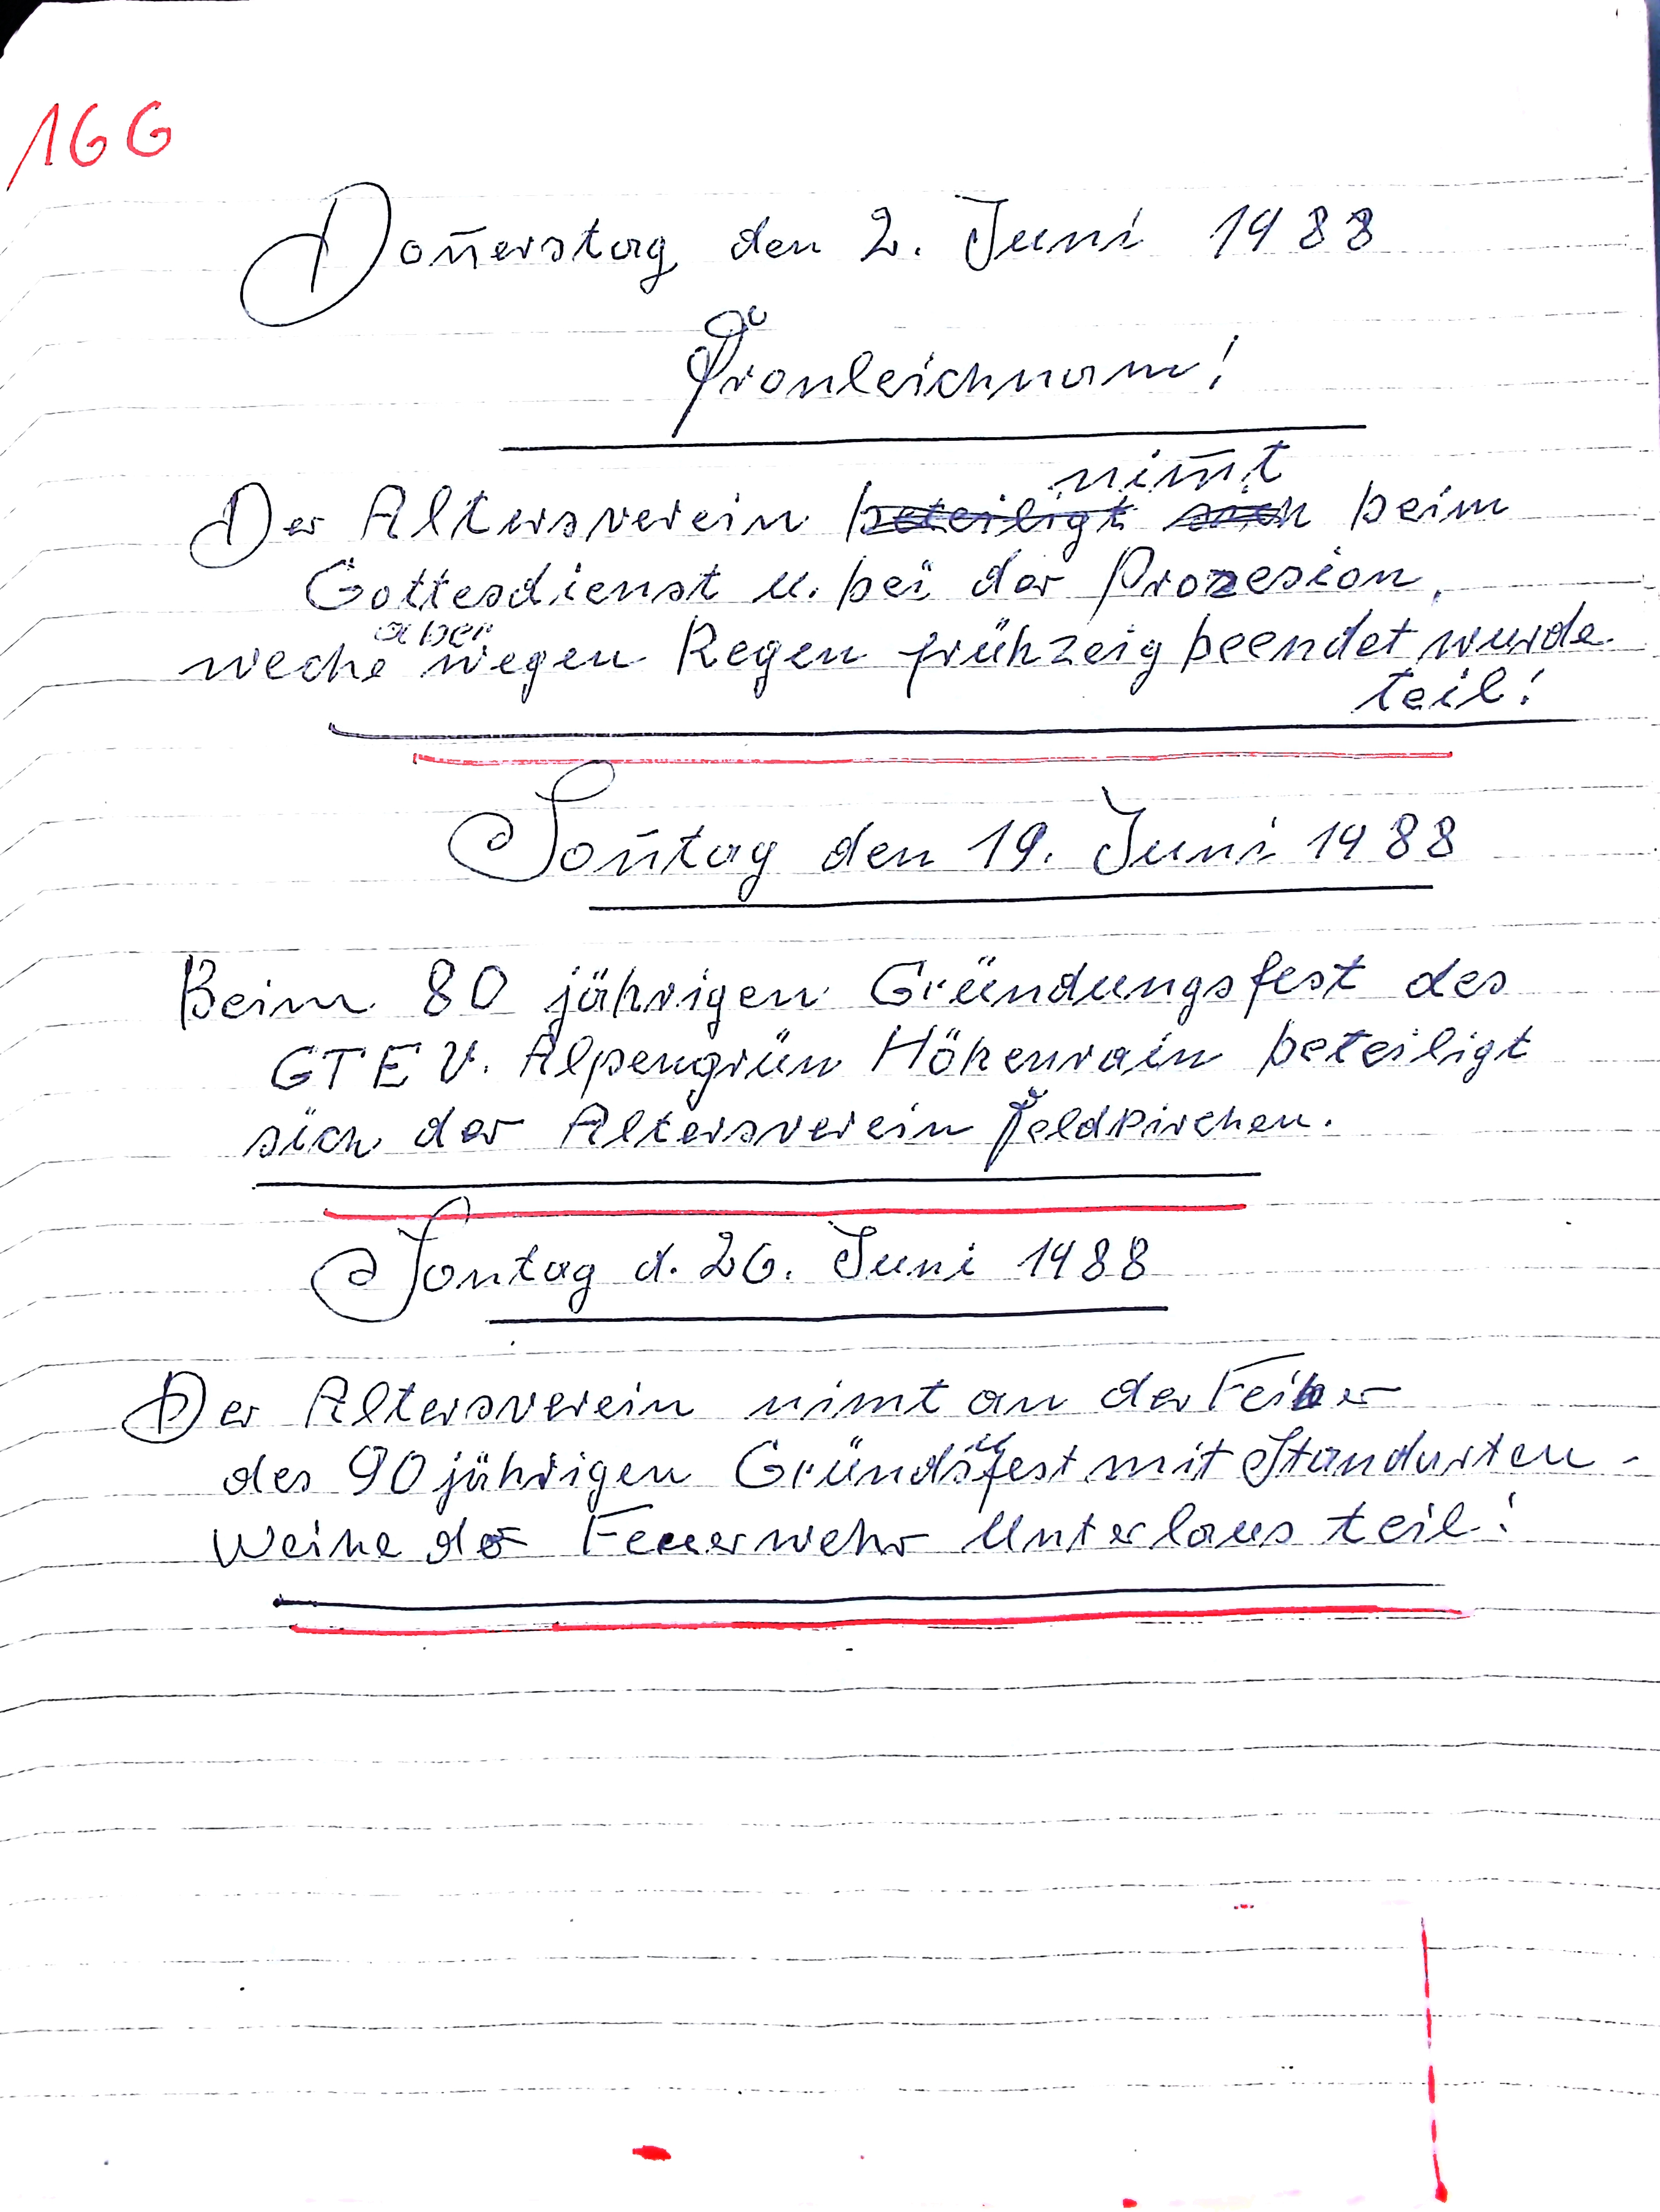 166
Don̄erstag den 2. Juni 1988
Fronleichnam!
nim̄t
Der Altersverein beteiligt sich beim
Gottesdienst u. bei der Prozesion,
aber
weche wegen Regen frühzeig beendet wurde
teil!
Son̄tag den 19. Juni 1988
Beim 80 jährigen Gründungsfest des
GTEV. Alpengrün Höhenrain beteiligt
sich der Altersverein Feldkirchen.
Sontag d. 26. Juni 1988
Der Altersverein nimt an der Feier
des 90 jährigen Gründsfest mit Standarten-
weihe der Feuerwehr Unterlaus teil!